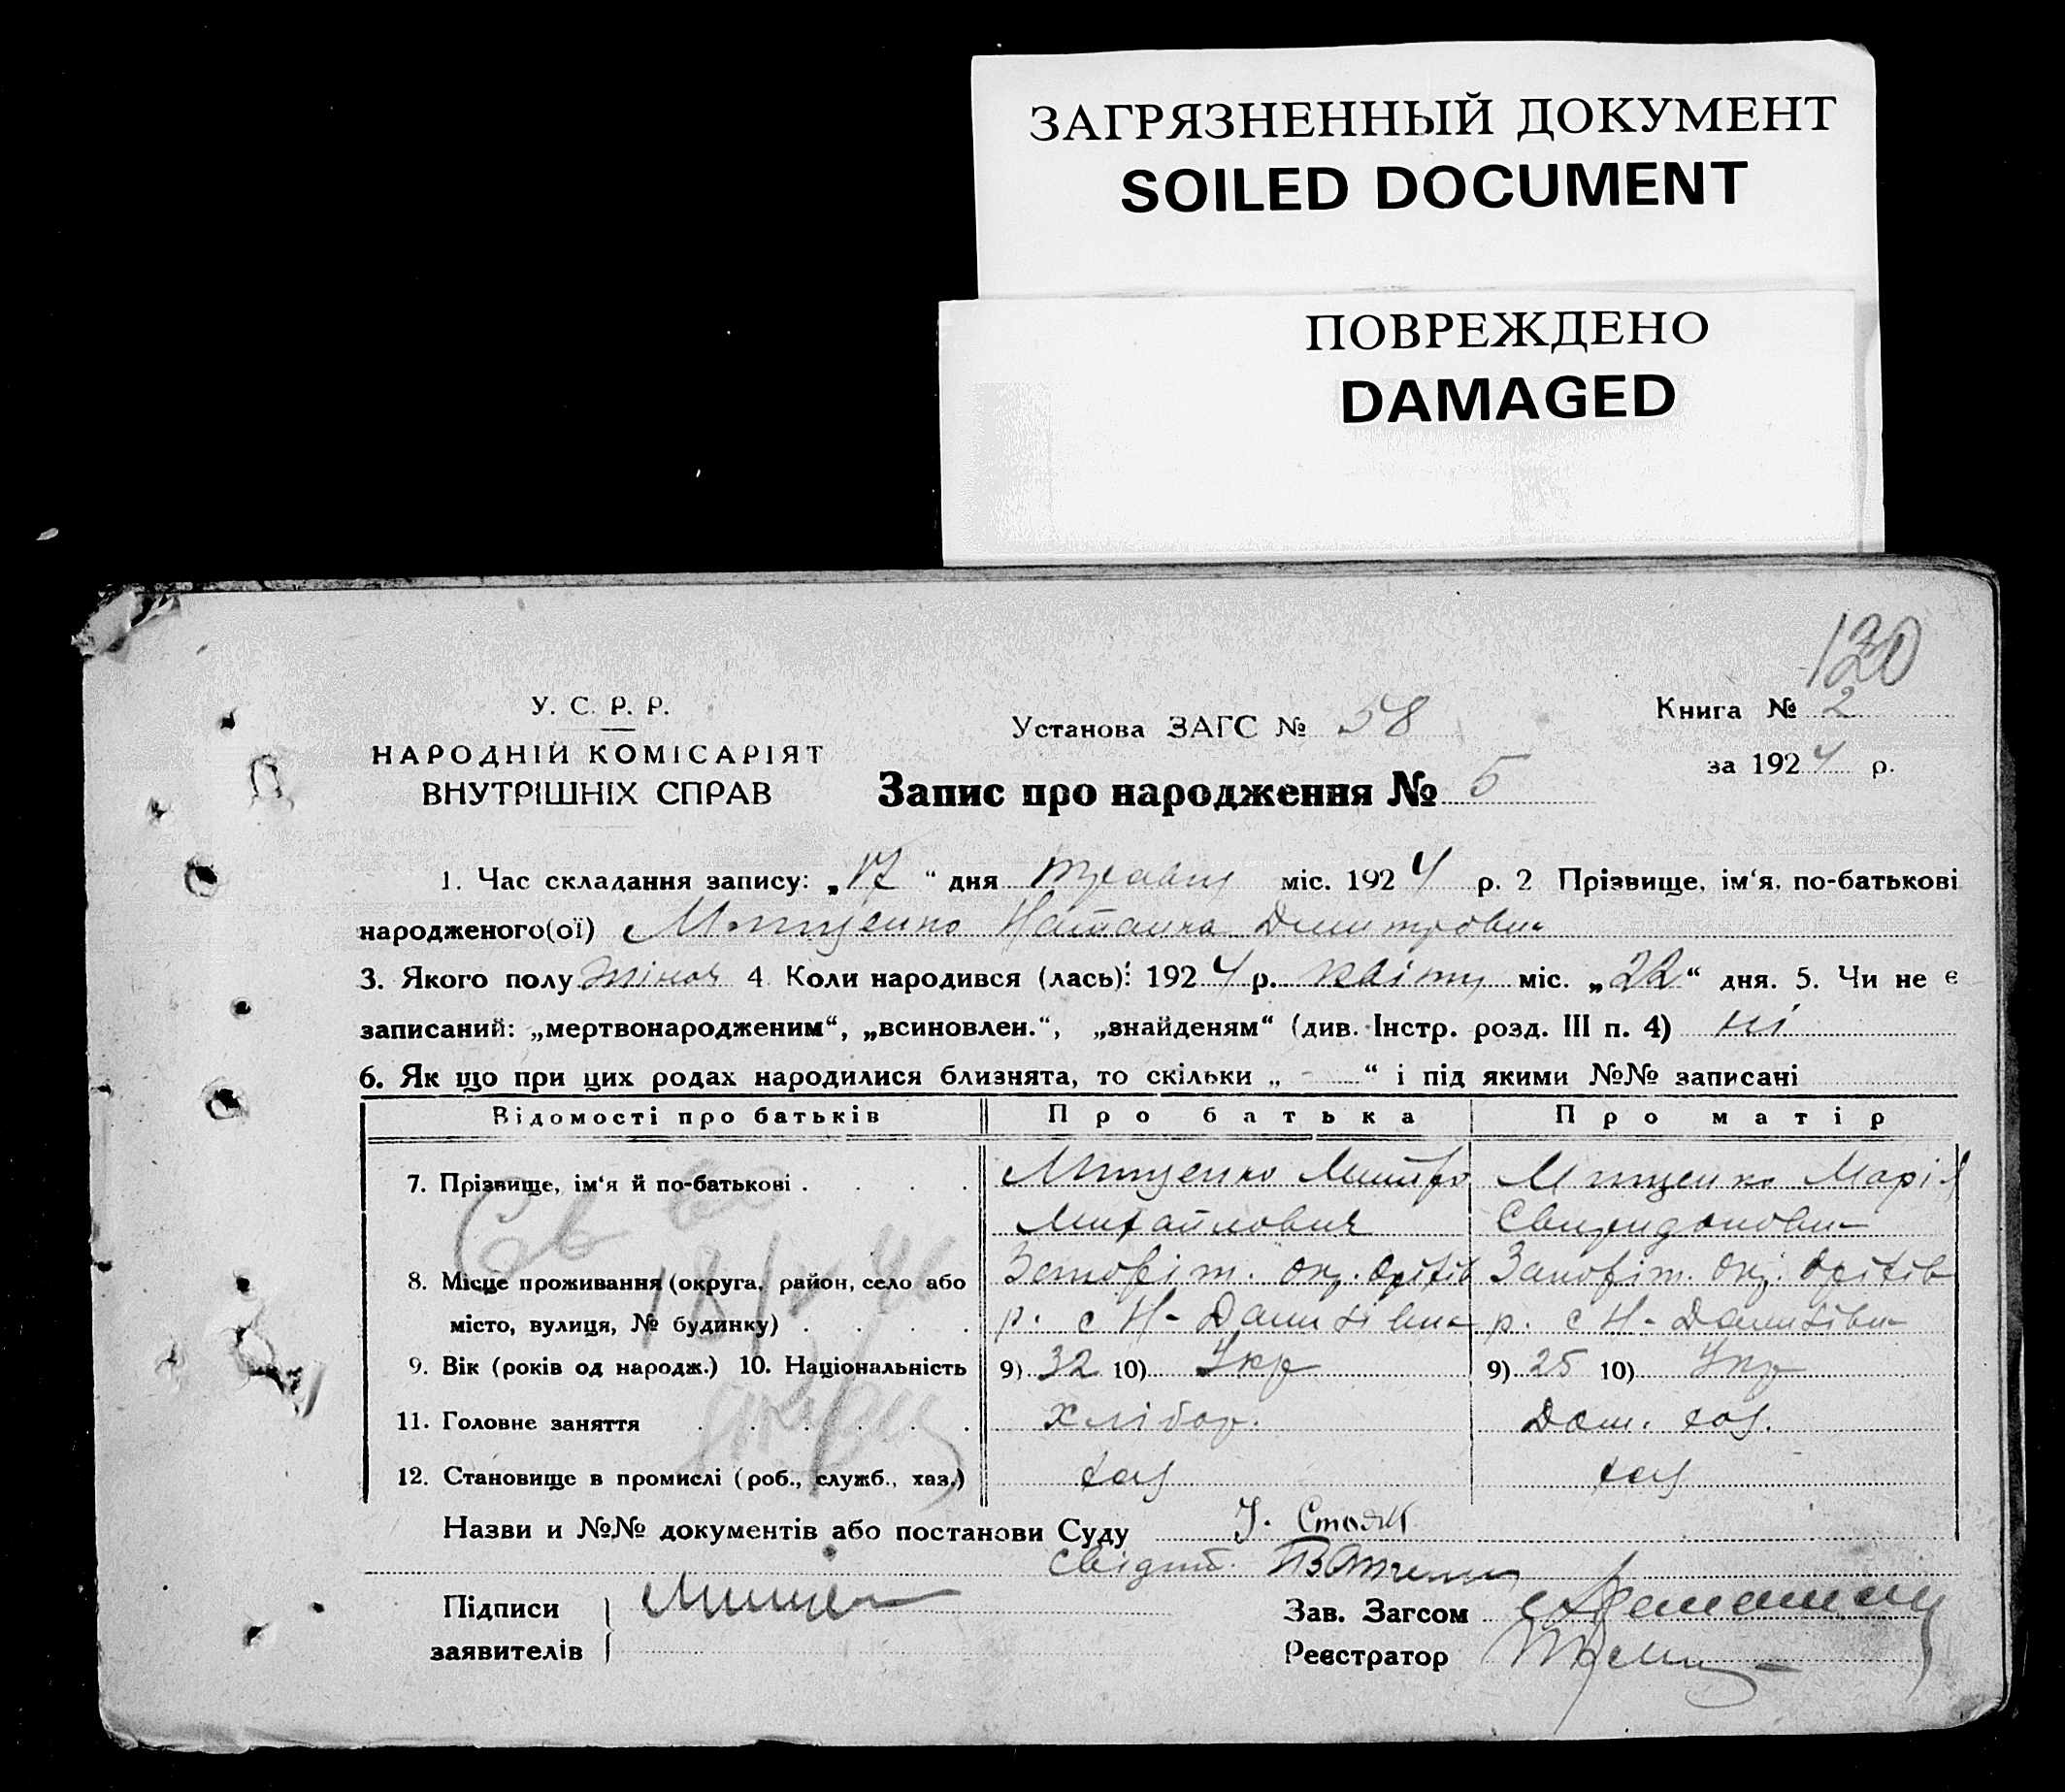 ЗАГРЯЗНЕННЫЙ ДОКУМЕНТ
SOILED DOCUMENT
ПОВРЕЖДЕНО
DAMAGED
120
У. С. Р. Р.
НАРОДНІЙ КОМІСАРІЯТ
ВНУТРІШНІХ СПРАВ
Установа ЗАГС № 58
Книга № 2
за 1924 р.
Запис про народження № 5
1. Час складання запису: „17“ дня травня міс. 1924 р. 2 Прізвище, ім‘я, по-батькові
народженого(ої) Мищенко Наталка Дмитровна
3. Якого полу жіноч 4 Коли народився (лась): 1924 р. квітня міс. „22“ дня. 5. Чи не є
записаний: „мертвонародженим“, „всиновлен.“, „знайденям“ (див. Інстр. розд. III п. 4) ні
6. Як що при цих родах народилися близнята, то скільки „ - “ і під якими №№ записані
Відомості про батьків Про батька Про матір
7. Прізвище, ім‘я й по-батькові . . . . Мищенко Мищенко Марія
Михайлович
8. Місце проживання (округа, район, село або Запоріт. окр. Оріхів Запоріт. окр. Оріхів
місто, вулиця, № будинку) . . . . р. с Н- Данилівка р. с Н- Данилівка
9. Вік (років од народж.) 10. Національність 9) 32 10) Укр 9) 25 10) Укр
11. Головне заняття . . . . . . хлібор. Дом. хаз.
12. Становище в промислі (роб., служб., хаз.) хаз хаз
Назви и №№ документів або постанови Суду
Свідит.
Підписи
заявителів
Зав. Загсом
Реєстратор